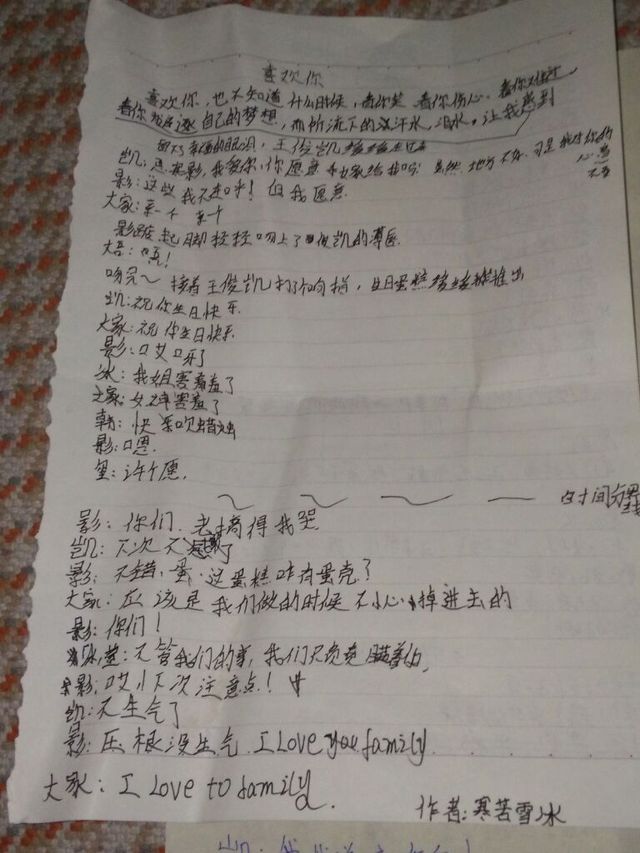 喜欢你
喜欢你，也不知道什么时候，看你笑 看你伤心、看你
看你追逐自己的梦想，而所流下的汗水，泪水。让我感到
王俊凯
凯：影，我爱你，你愿意 吗？虽然 地方不好、可是我对你的心意
不变
影：这些我不在乎！但我愿意
大家：亲一个 亲一个
影踮起脚轻轻吻上了 凯的薄唇
大吾：哇！
吻完～ 接着王俊凯打了响指，生日蛋糕缓缓推出
凯：祝你生日快乐
大家：祝你生日快乐
影：哎呀
冰：我姐害羞了
大家：女神害羞了
韩：快来吹蜡烛
影：嗯
玺：许个愿
时间分界线
影：你们、老搞得我哭
凯：下次不
影：不错、蛋、这蛋糕咋有蛋壳？
大家：应该是我们做的时候不小心掉进去的
影：你们！
冰、萱：不管我们的事，我们只负责
影：哎 下次注意点！
凯：不生气了
影：压根没生气 I Love you family
大家：I Love to family
作者：寒苦雪冰